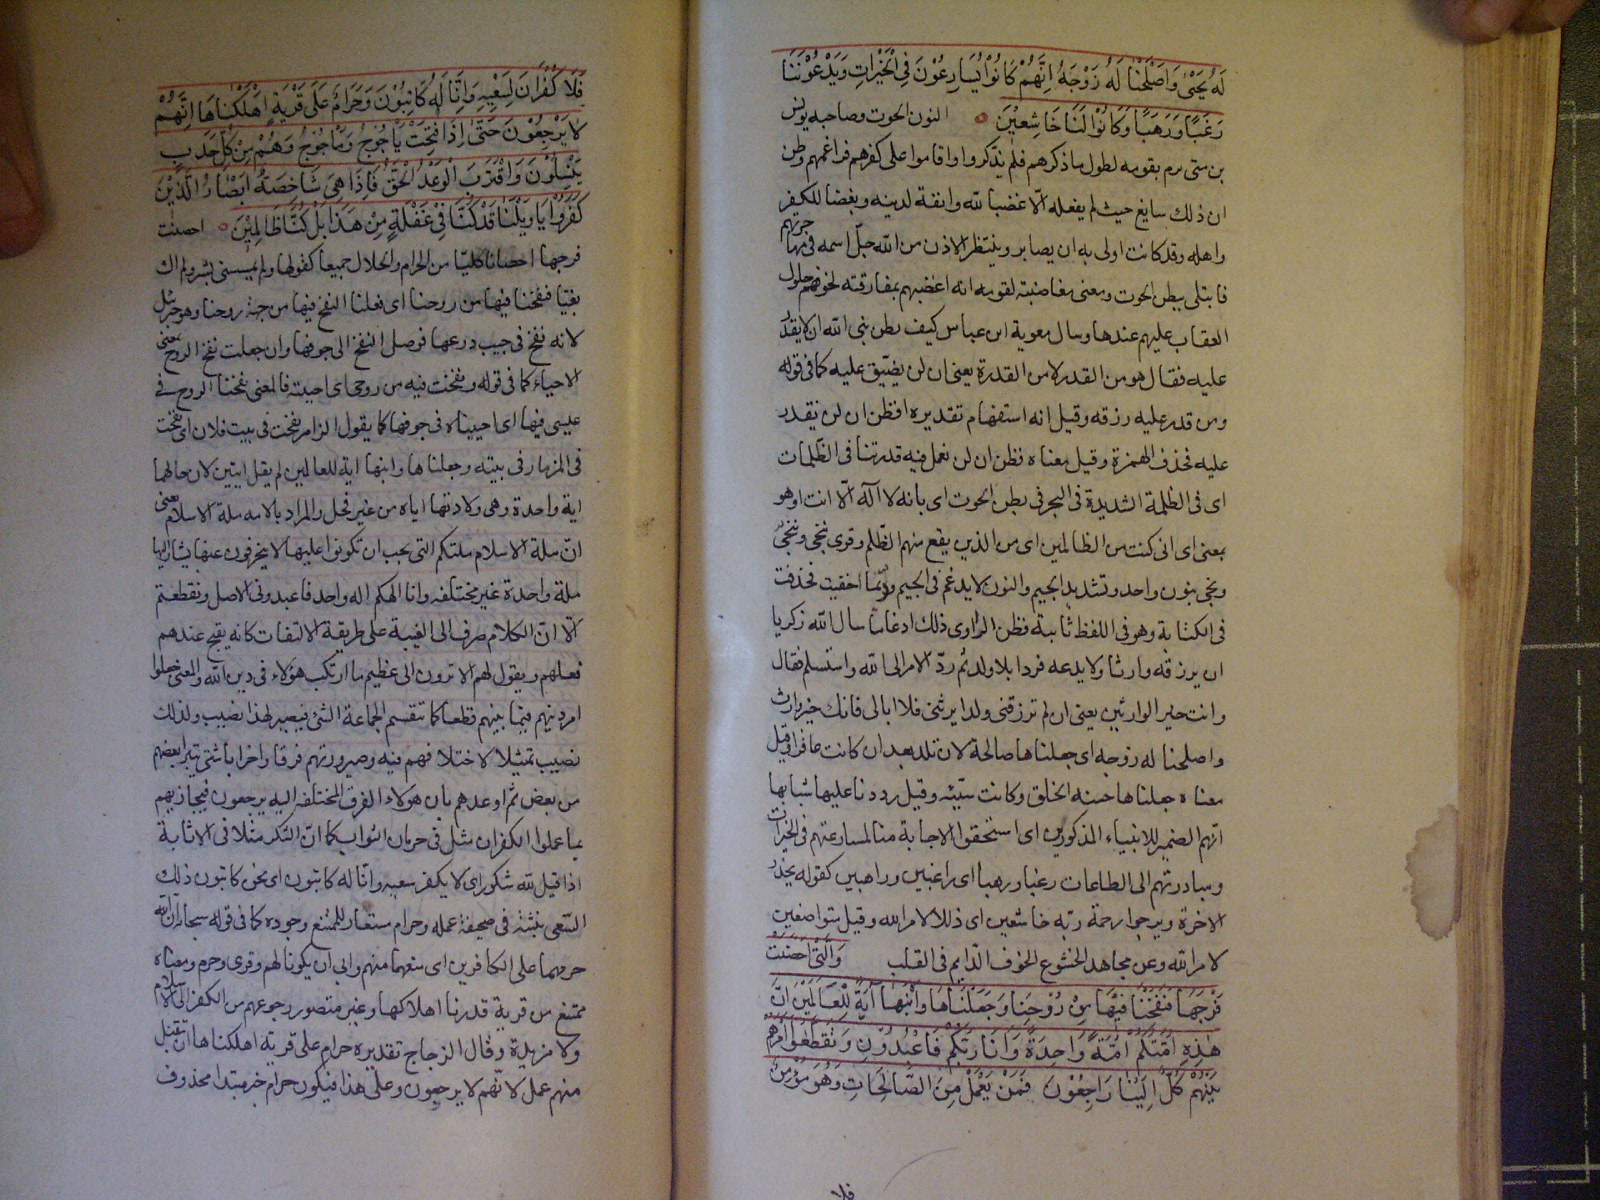 لَهُ يَحْيٰى وَاَصْلَحْنَا لَهُ زَوْجَهُ اِنَّهُمْ كَانُوْا يُسَارِعُوْنَ فِى الْخَيْرَاتِ وَيَدْعُوْنَنَا
رَغَبًا وَرَهَبًا وَكَانُوْا لَنَا خَاشِعِيْنَ النون الحوت وصاحبه يونس
بن متى برم بقومه لطول ما ذكرهم فلم يذكروا واقاموا على كفرهم فراغمهم وظن
ان ذلك سايغ حيث لم يفعله الا غضبا لله وانفة لدينه وبغضا للكفر
واهله وقد كانت اولى به ان يصابر وينتظر الاذن من الله جل اسمه فى مهاجرتهم
فابتلى ببطن الحوت ومعنى مغاضبته لقومه انه اغضبهم بمفارقته لخوفهم حلول
العقاب عليهم عندها وسال معوية ابن عباس كيف يظن نبى الله ان لا يقدر
عليه فقال هو من القدر لا من القدرة يعنى ان لن يضيق عليه كما فى قوله
ومن قدر عليه رزقه وقيل انه استفهام تقديره افظن ان لن نقدر
عليه فحذف الهمزة وقيل معناه فظن ان لن نعمل فيه قدرتنا فى الظلمات
اى فى الظلمة الشديدة فى البحر فى بطن الحوت اى بانه لا اله الا انت او هو
بمعنى اى انى كنت من الظالمين اى من الذين يقع منهم الظلم وقرى ننجى وننجى
ونجى بنون واحد وتشديد الجيم والنون لا يدغم فى الجيم وانما اخفيت فحذفت
فى الكتابة وهو فى اللفظ ثابتة فظن الراوى ذلك ادغاما سال الله زكريا
ان يرزقه وارثا ولا يدعه فردا بلا ولد ثم رد الامر الى الله واستسلم فقال
وانت خير الوارثين يعنى ان لم ترزقنى ولدا يرثنى فلا ابالى فانك خير وارث
واصلحنا له زوجه اى جعلناها صالحة لان تلد بعد ان كانت عاقرا وقيل
معناه جعلناها حسنة الخلق وكانت سيئه وقيل رددنا عليها شبابها
انهم الضمير للانبياء المذكورين اى استحقوا الاجابة منا لمسارعتهم فى الخيرات
ومبادرتهم الى الطاعات رغبا ورهبا اى راغبين وراهبين كقوله يحذر
الاخرة ويرجوا رحمة ربه خاشعين اى ذللا لامر الله وقيل متواضعين
لامر الله وعن مجاهد الخشوع الخوف الدايم فى القلب وَالَّتِىْ اَحْصَنَتْ
فَرْجَهَا فَنَفَخْنَا فِيْهَا مِنْ رُوْحِنَا وَجَعَلْنَاهَا وَابْنَهَا آيَةً لِلْعَالَمِيْنَ اِنَّ
هٰذِهِ اُمَّتُكُمْ اُمَّةً وَاحِدَةً وَاَنَا رَبُّكُمْ فَاعْبُدُوْنِ وَتَقَطَّعُوْا اَمْرَهُمْ
بَيْنَهُمْ كُلٌّ اِلَيْنَا رَاجِعُوْنَ فَمَنْ يَعْمَلْ مِنَ الصَّالِحَاتِ وَهُوَ مُؤْمِنٌ
فلا
فَلَا كُفْرَانَ لِسَعْيِهِ وَاِنَّا لَهُ كَاتِبُوْنَ وَحَرَامٌ عَلٰى قَرْيَةٍ اَهْلَكْنَاهَا اَنَّهُمْ
لَا يَرْجِعُوْنَ حَتّٰى اِذَا فُتِحَتْ يَاْجُوْجُ وَمَاْجُوْجُ وَهُمْ مِنْ كُلِّ حَدَبٍ
يَنْسِلُوْنَ وَاقْتَرَبَ الْوَعْدُ الْحَقُّ فَاِذَا هِىَ شَاخِصَةٌ اَبْصَارُ الَّذِيْنَ
كَفَرُوْا يَا وَيْلَنَا قَدْ كُنَّا فِىْ غَفْلَةٍ مِنْ هٰذَا بَلْ كُنَّا ظَالِمِيْنَ احصنت
فرجها احصانا كليا من الحرام والحلال جميعا كقولها ولم يمسسنى بشر ولم اك
بغيا فنفخنا فيها من روحنا اى فعلنا النفخ فيها من جهة روحنا وهو جبرئيل
لانه نفخ فى جيب درعها فوصل النفخ الى جوفها وان جعلت نفخ الروح بمعنى
الاحياء كما فى قوله ونفخت فيه من روحى اى احييته فالمعنى نفخنا الروح فى
عيسى فيها اى احييناه فى جوفها كما يقول الزامر نفخت فى بيت فلان اى نفخت
فى المزمار فى بيته وجعلناها وابنها اية للعالمين لم يقل ايتين لان حالهما
اية واحدة وهى ولادتها اياه من غير فحل والمراد بالامه ملة الاسلام يعنى
ان ملة الاسلام ملتكم التى يجب ان تكونوا عليها لا ينحرفون عنها يشار اليها
ملة واحدة غير مختلفه وانا الهكم اله واحد فاعبدونى الاصل وتقطعتم
الا ان الكلام صرف الى الغيبة على طريقة الالتفات كانه يقبح عندهم
فعلهم ويقول لهم الا ترون الى عظيم ما ارتكب هؤلاء فى دين الله والمعنى جعلوا
امر دينهم فيما بينهم قطعا كما تنقسم الجماعة الشئ فيصير لهذا نصيب ولذلك
نصيب تمثيلا لاختلافهم فيه وصيرورتهم فرقا واحزابا شتى يتبرا بعضهم
من بعض ثم اوعدهم بان هولاء الفرق المختلفه اليه يرجعون فيجازيهم
بما عملوا الكفران مثل فى حرمان الثواب كما ان الشكر مثلا فى الاثابة
اذا قيل لله شكور اى لا يكفر سعيه وانا له كاتبون اى نحن كاتبون ذلك
السعى نثبته فى صحيفة عمله وحرام مستعار للممتنع وجوده كما فى قوله سبحانه ان الله
حرمهما على الكافرين اى منعهما منهم وابى ان يكونا لهم وقرى وحرم ومعناه
ممتنع من قرية قدرنا اهلاكها وغير متصور رجوعهم من الكفر الى الاسلام
ولا مزيدة وقال الزجاج تقديره حرام على قرية اهلكناها ان يتقبل
منهم عمل لانهم لا يرجعون وعلى هذا فيكون حرام خبر مبتدا محذوف